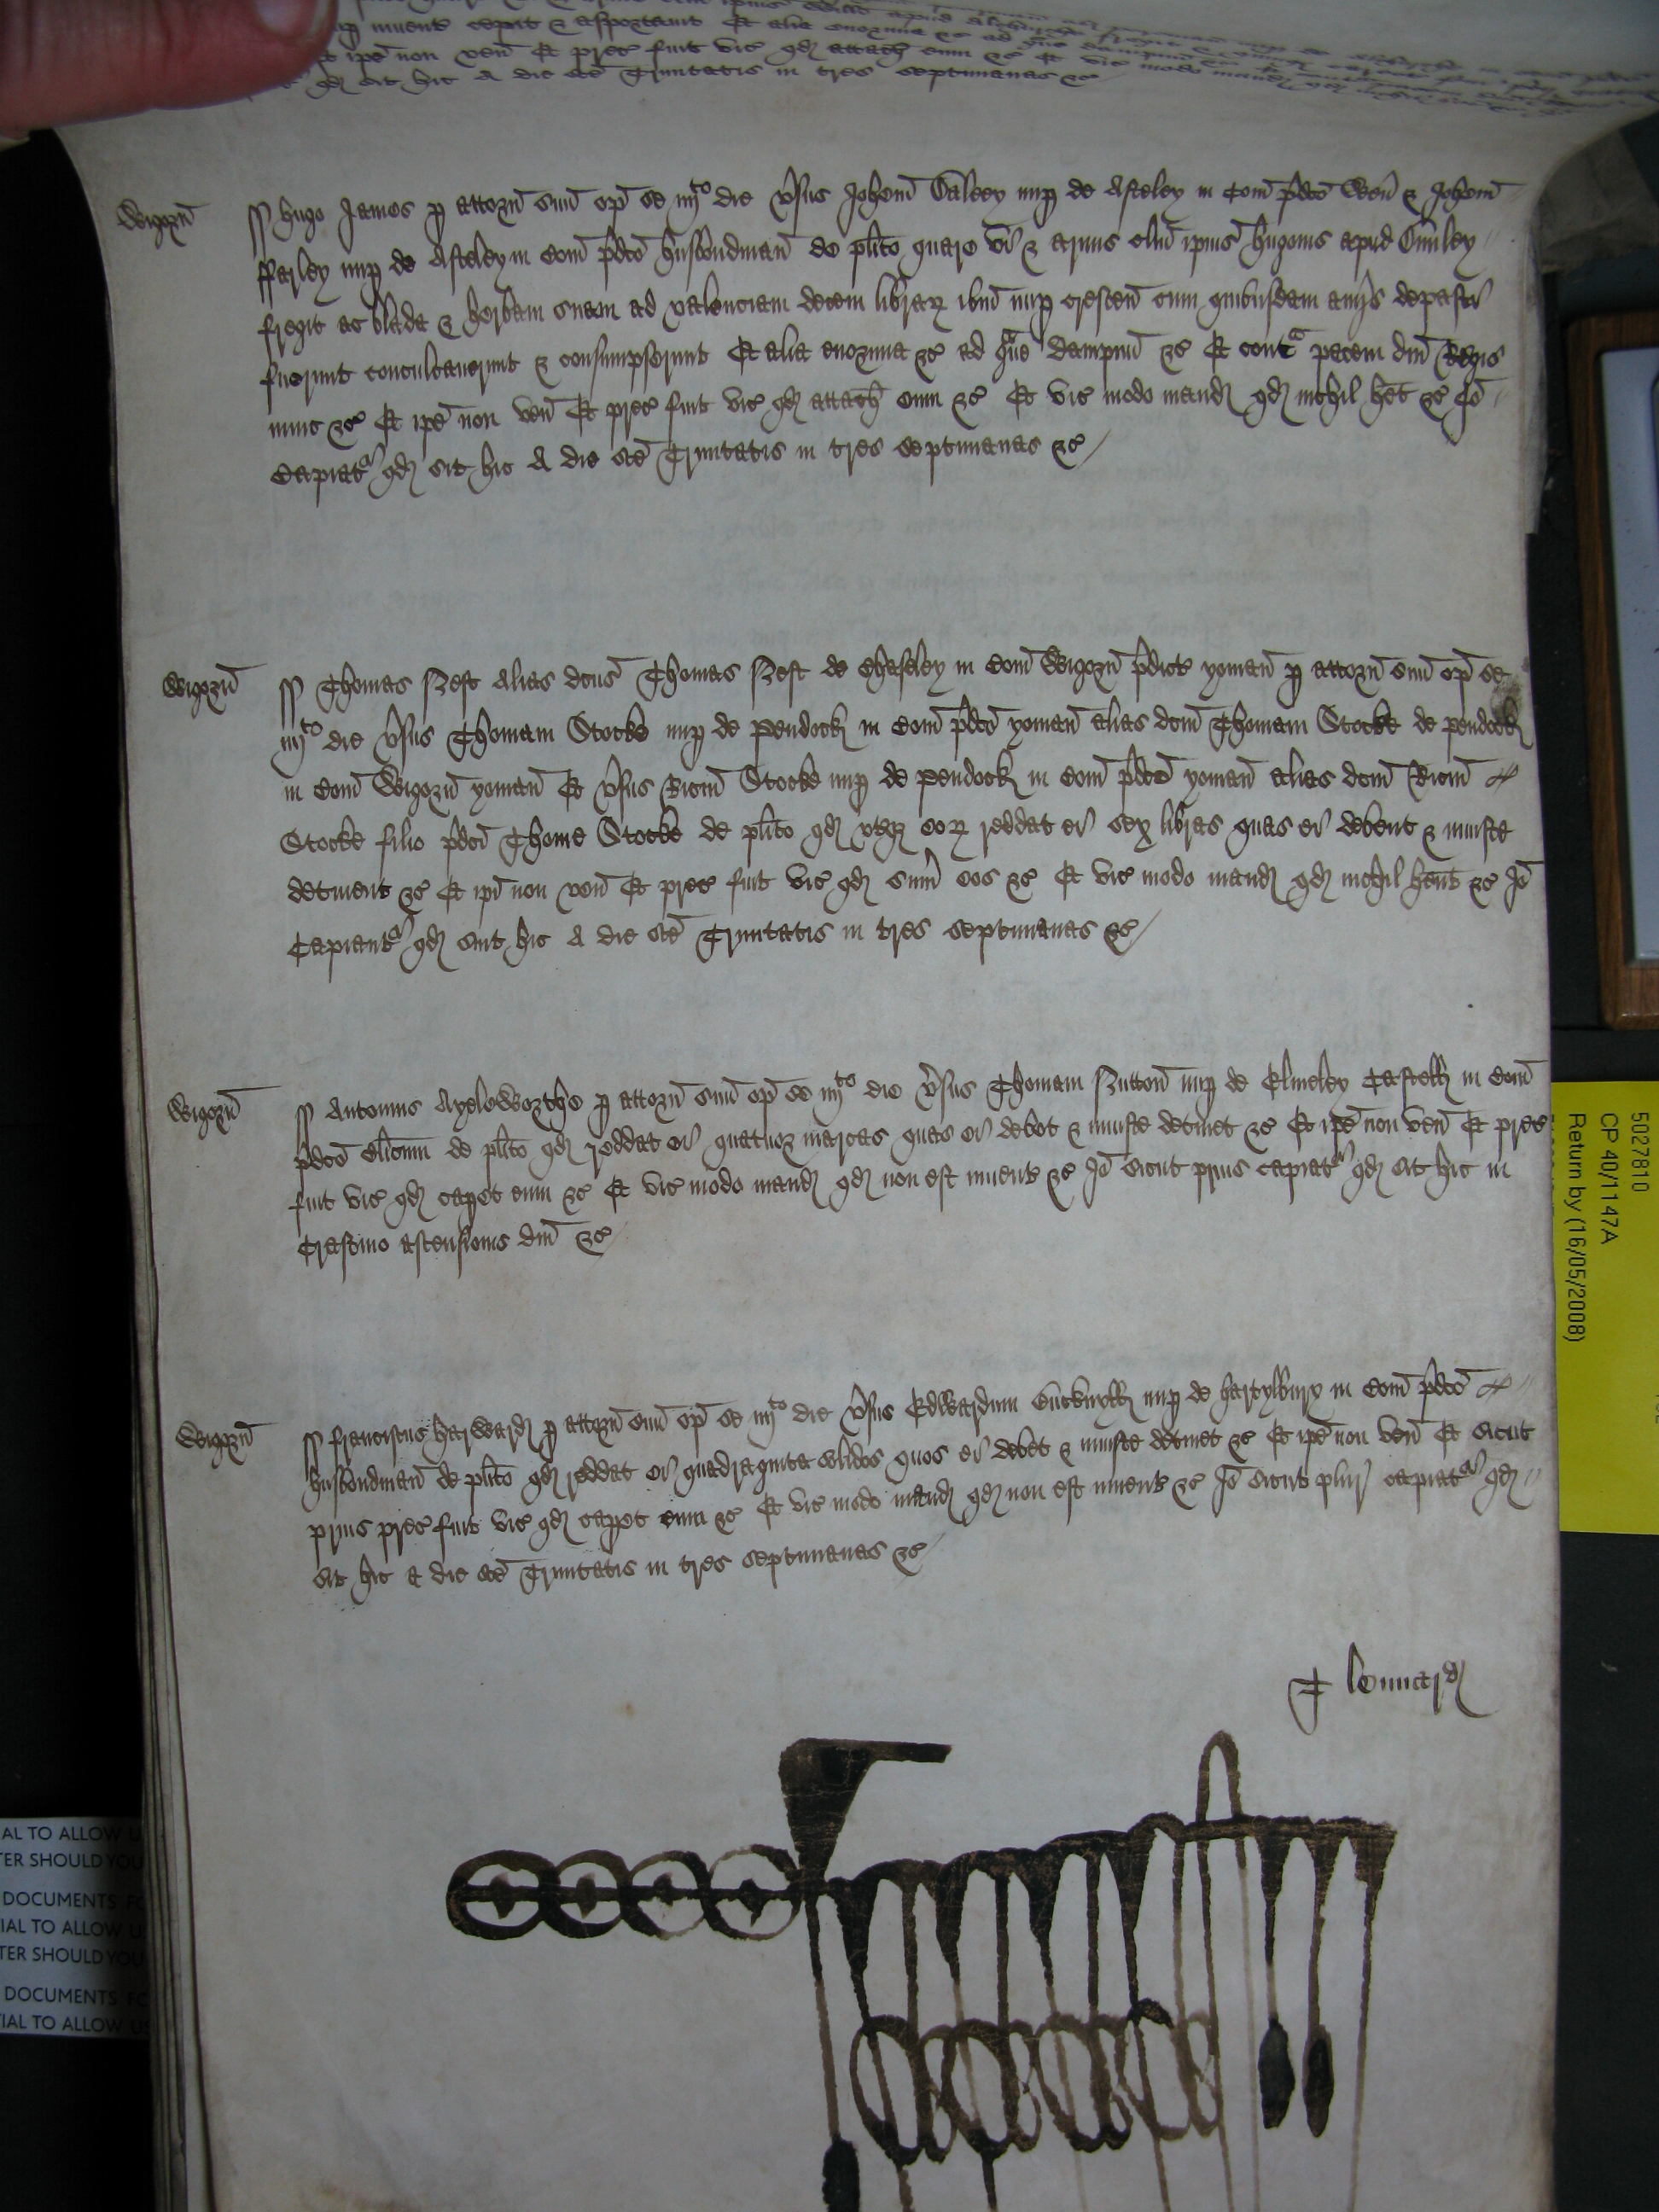 Wigorn ss Hugo James p attorn suu op se iiijto die vsus Johem Oakey nup de Asteley in Com pdco Wen & Johem
ffarley nup de Asteley in Com pdco husbondman de plito quare vi & armis clm ipius Hugonis apud
fregit ac blada & herbam suam ad valenciam decem librar ibm nup crescen cum quibusdam depasti
fuerunt conculcauerunt & consumpserunt Et alia enormia &c ad gue dampnu &c Et contra pacem dni Regis
nunc &c Et ipe non ven Et prec fuit vic qd attach eum &c Et vic modo mand qd nichil het &c Io
Capiatr qd sit hic A die sce Trinitatis in tres septimanas &c
Wigorn ss Thomas Hest Alias dcus Thomas Hest de Chaseley in Com Wigorn pdict yoman p attorn suu op se
iiijto die vsus Thomam Stocke nup de Pendock in Com pdco yoman alias dcm Thomam Stocke de pendock
in Com Wigorn yoman Et vsus Ricm Stocke nup de pendock in Com pdco yoman alias dcm Ricm
Stocke filio pdci Thome Stocke de plito qd vtrq eor reddat ei sex libras quas ei debent & iniuste
detinent &c Et ipi non ven Et prec fuit vic qd sum eos &c Et vic modo mand qd nichil hent &c Io
Capiantr qd sint hic A die sce Trinitatis in tres septimanas &c
Wigorn ss Antonius Ayeleworthe p attorn suu op se iiijto die vsus Thomam Hutton nup de Elmeley Castell in Com
pdco clicum de plito qd reddat ei quatuor marcas quas ei debet & iniuste detinet &c Et ipe non ven Et prec
fuit vic qd capet eum &c Et vic modo mand qd non est inuent &c Io sicut prius capiatr qd sit hic in
Crastino ascensionis dni &c
Wigorn ss ffranciscus Harward p attorn suu op se iiijto die vsus Edwardum nup de hartylbury in Com pdco
husbondman de plito qd reddat ei quadraginta solidos quos ei debet & iniuste detinet &c Et ipe non ven Et sicut
prius prec fuit vic qd capet eum &c Et vic modo mand qd non est inuent &c Io sicut plur capiatr qd
sit hic a die sce Trinitatis in tres septimanas &c
lennard
5027810
CP 40/1147A
Return by (16/05/2008)
AL TO ALLOW U
TER SHOULD YOU
DOCUMENTS FO
IAL TO ALLOW U
TER SHOULD YOU
DOCUMENTS FO
IAL TO ALLOW US